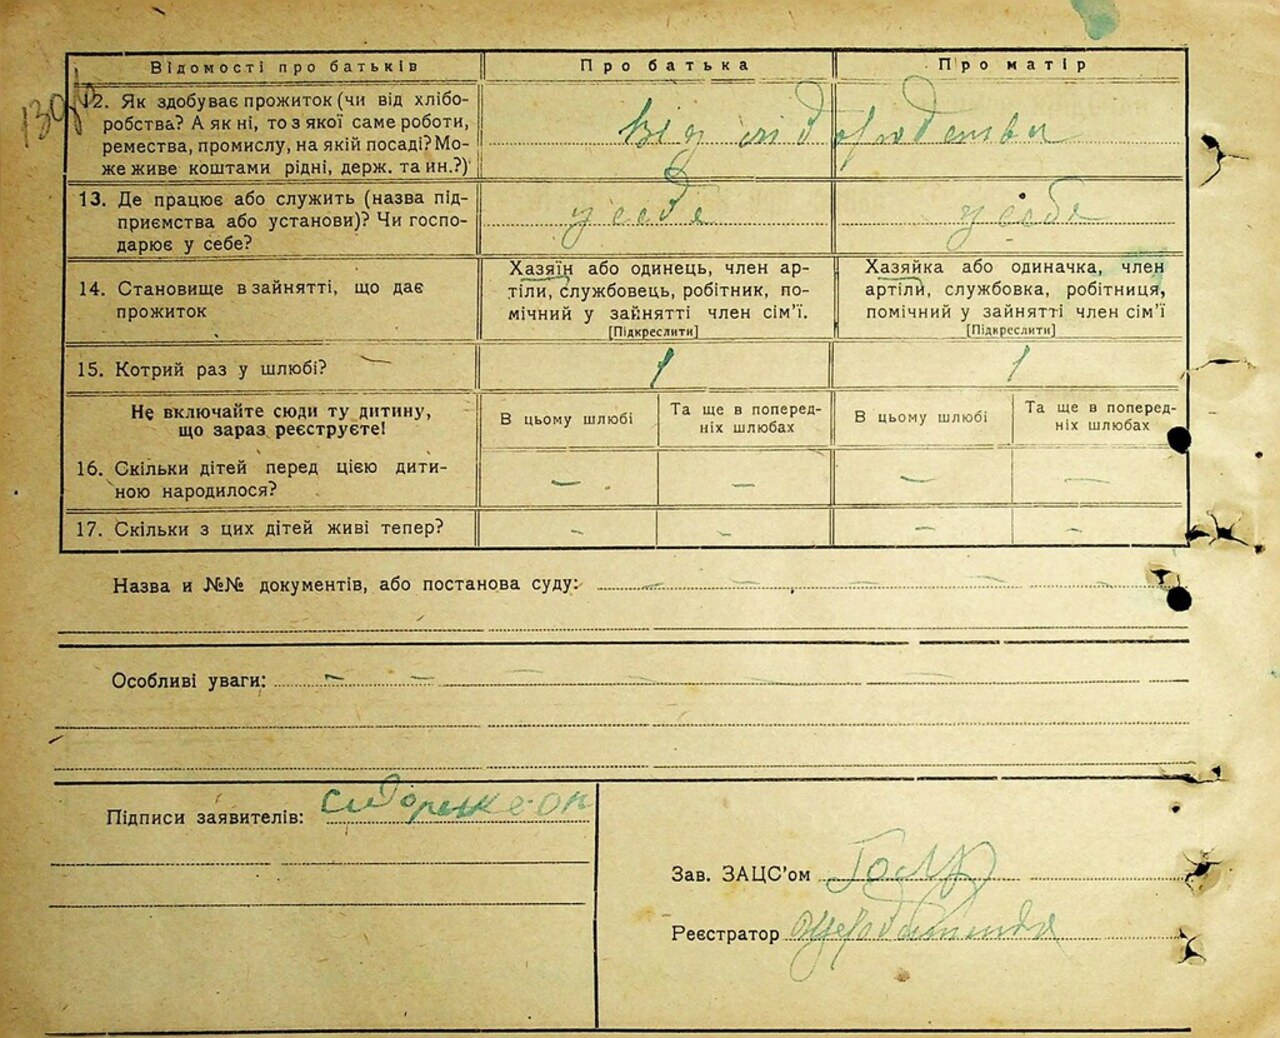 Відомості про батьків
Про батька
Про матір
12. Як здобуває прожиток (чи від хлібо-
робства? А як ні, то з якої саме роботи,
ремества, промислу, на якій посаді? Мо-
же живе коштами рідні, держ. та ин.?)
Від
13. Де працює або служить (назва під-
приємства або установи)? Чи госпо-
дарює у себе?
у себе
у себе
14. Становище в зайнятті, що дає
прожиток
Хазяїн або одинець, член ар-
тіли, службовець, робітник, по-
мічний у зайнятті член сім'ї.
[Підкреслити]
Хазяйка або одиначка, член
артіли, службовка, робітниця,
помічний у зайнятті член сім'ї
[Підкреслити]
15. Котрий раз у шлюбі?
1
1
Не включайте сюди ту дитину,
що зараз реєструєте!
В цьому шлюбі
Та ще в поперед-
ніх шлюбах
В цьому шлюбі
Та ще в поперед-
ніх шлюбах
16. Скільки дітей перед цією дити-
ною народилося?
– – – –
17. Скільки з цих дітей живі тепер?
– – – –
Назва и №№ документів, або постанова суду: – – – – –
Особливі уваги: – – – – –
Підписи заявителів:
Зав. ЗАЦС'ом
Реєстратор